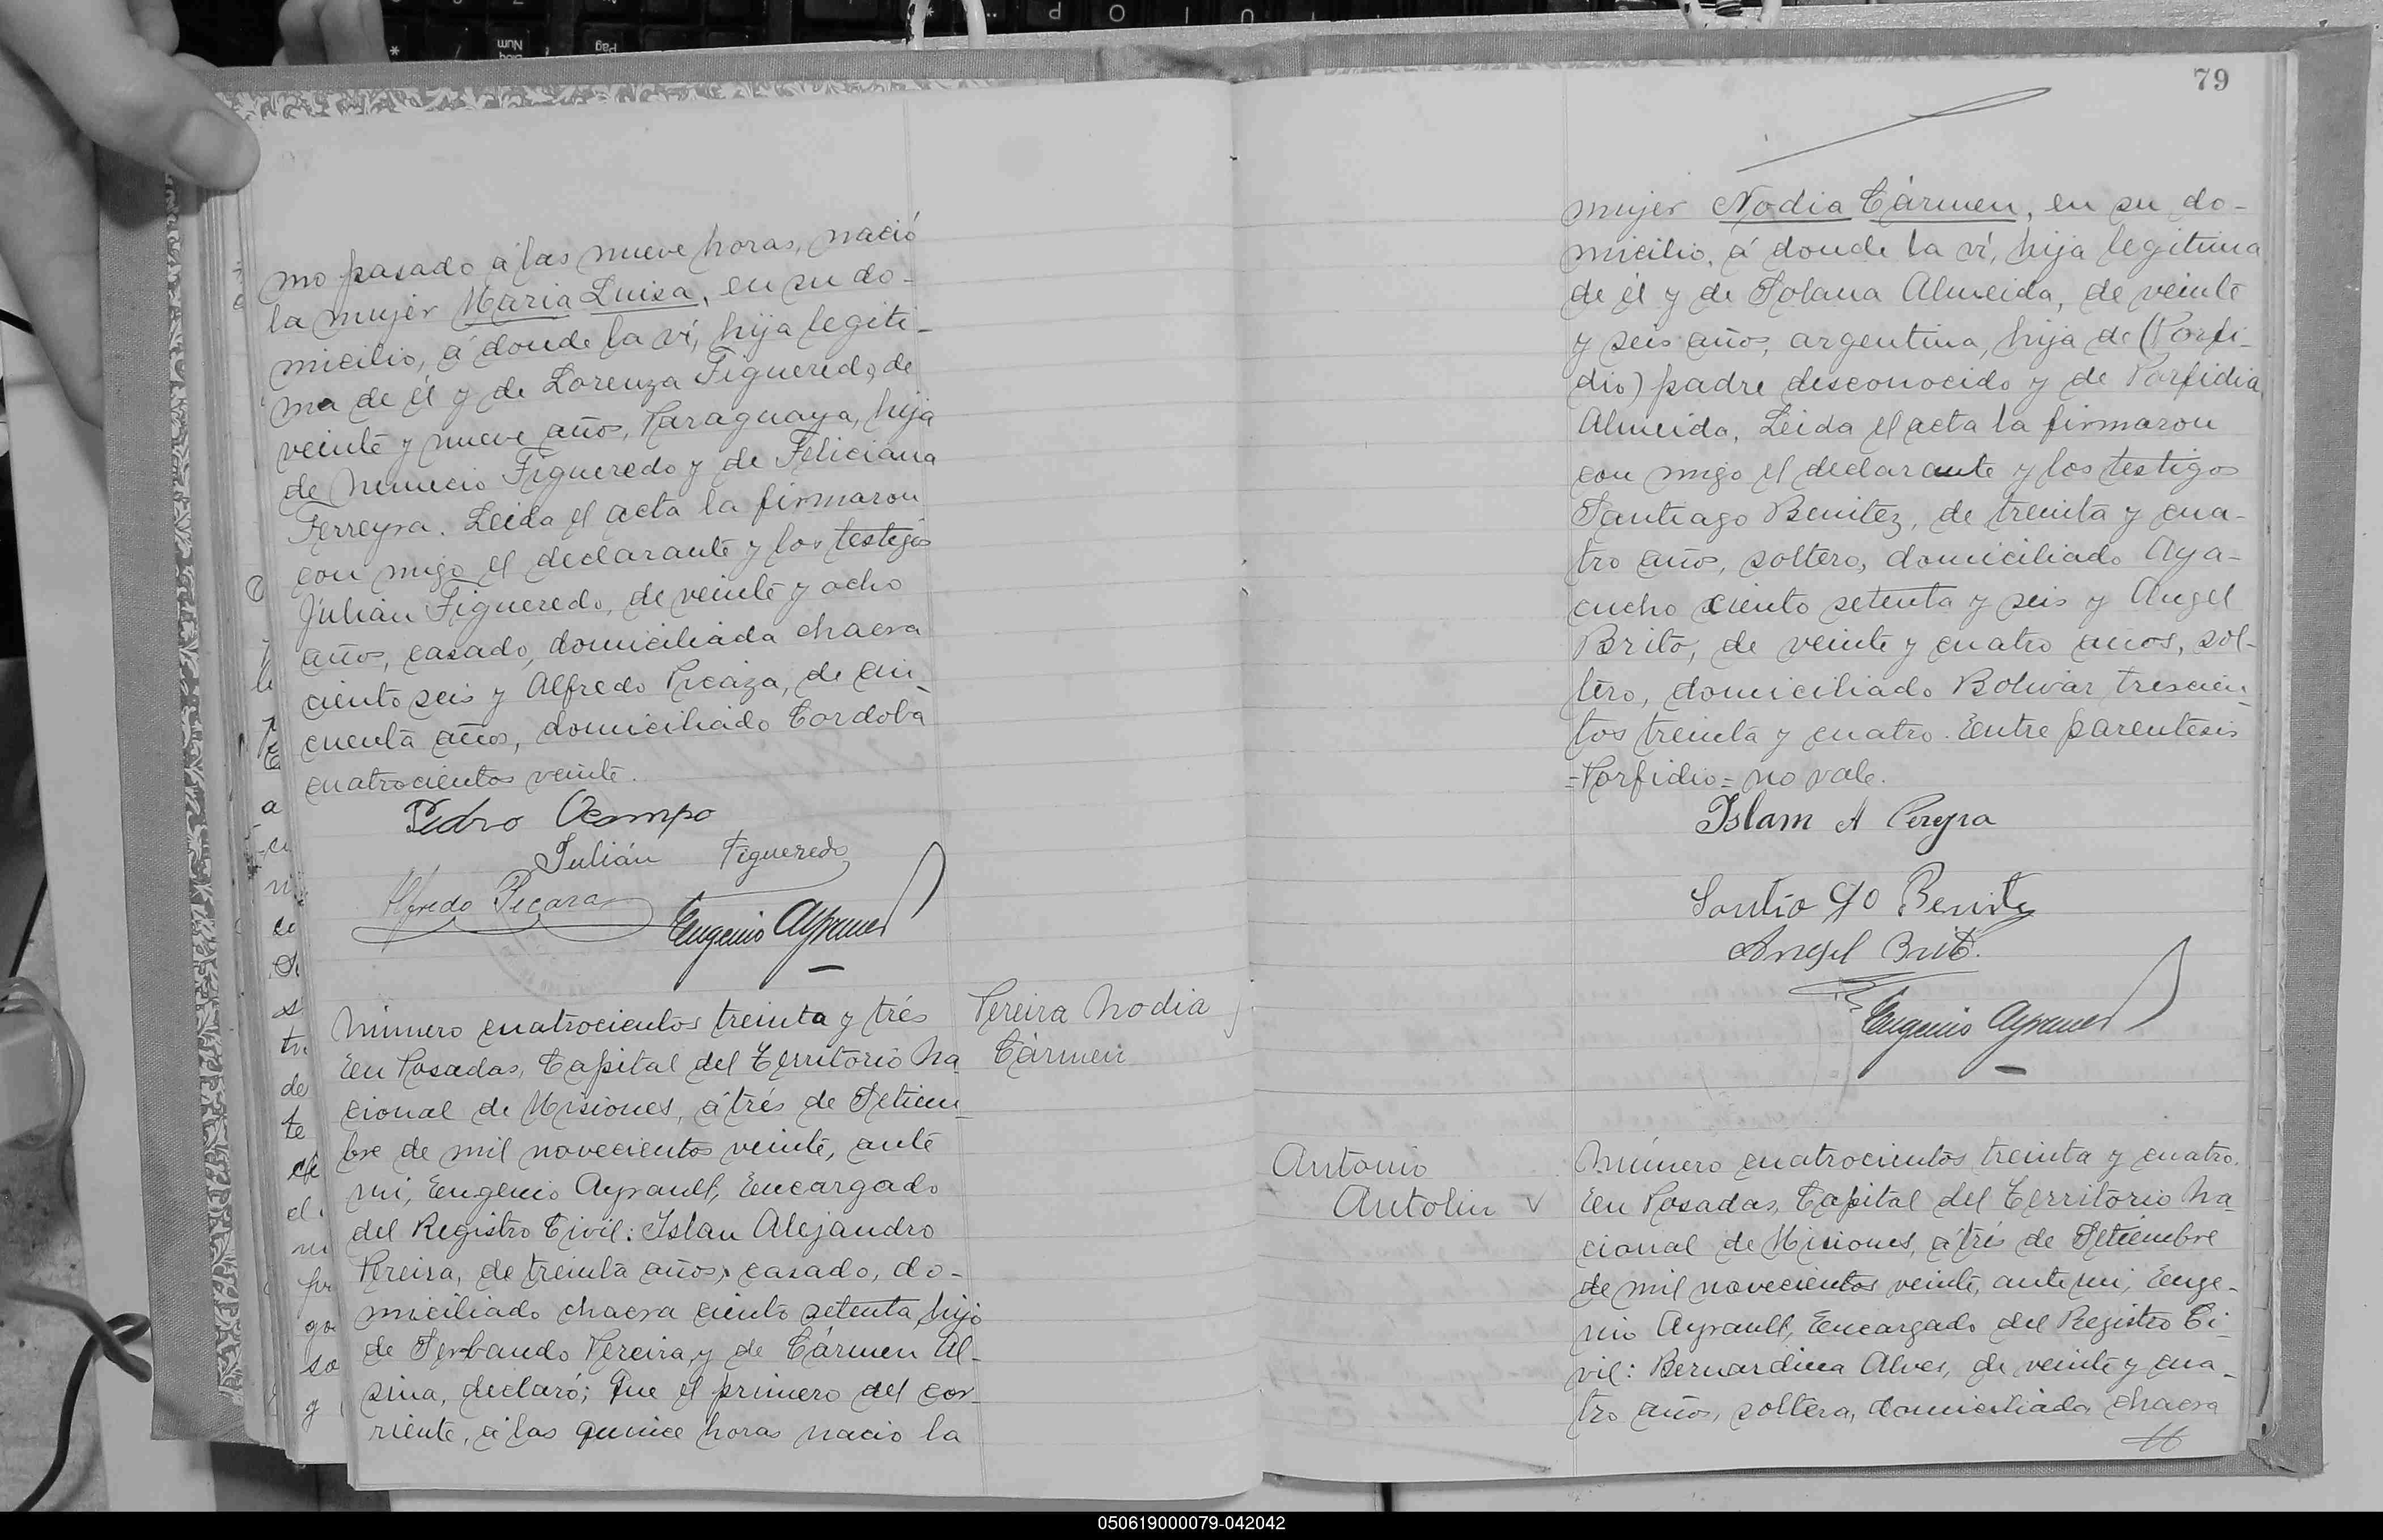 mo pasado á las nueve horas, nació
la mujer Maria Luisa, en su do-
micilio, á donde la ví, hija legiti-
ma de él y de Lorenza Figueredo, de
veinte y nueve años, Paraguaya, hija
de Nemecio Figueredo y de Feliciana
Ferreyra. Leida el acta la firmaron
con migo el declarante y los testigos
Julián Figueredo, de veinte y ocho
años, casado, domiciliada chacra
ciento seis y Alfredo Picaza, de cin-
cuenta años, domiciliado Cordoba
cuatrocientos veinte.
Pedro Ocampo
Julián Figueredo
Alfredo Picaza
Eugenio Ayrault
Número cuatrocientos treinta y trés
En Posadas, Capital del Territorio Na
cional de Misiones, á trés de Setiem-
bre de mil novecientos veinte, ante
mi, Eugenio Ayrault, Encargado
del Registro Civil: Islan Alejandro
Pereira, de treinta años, casado, do-
miciliado chacra ciento setenta, hijo
de Serbando Pereira, y de Cármen Al-
sina, declaró; Que el primero del cor-
riente, á las quince horas nacio la
Pereira Nodia
Cármen
79
mujer Nodia Cármen, en su do-
micilio, á donde la ví, hija legitima
de él y de Solana Almeida, de veinte
y seis años, argentina, hija de (Porfi-
dio) padre desconocido y de Porfidia
Almeida. Leida el acta la firmaron
con migo el declarante y los testigos
Santiago Benitez, de treinta y cua-
tro años, soltero, domiciliado Aya-
cucho ciento setenta y seis y Angel
Brito, de veinte y cuatro años, sol-
tero, domiciliado Bolivar trescien-
tos treinta y cuatro. Entre parentesis
=Porfidio= no vale.
Islam A Pereyra
Santia go Benitez
Angel Brito.
Eugenio Ayrault
Antonio
Antolin
Número cuatrocientos treinta y cuatro.
En Posadas, Capital del Territorio Na
cional de Misiones, á trés de Setiembre
de mil novecientos veinte, ante mi, Euge-
nio Ayrault, Encargado del Registro Ci-
vil: Bernardina Alves, de veinte y cua-
tro años, soltera, domiciliada chacra
050619000079-042042